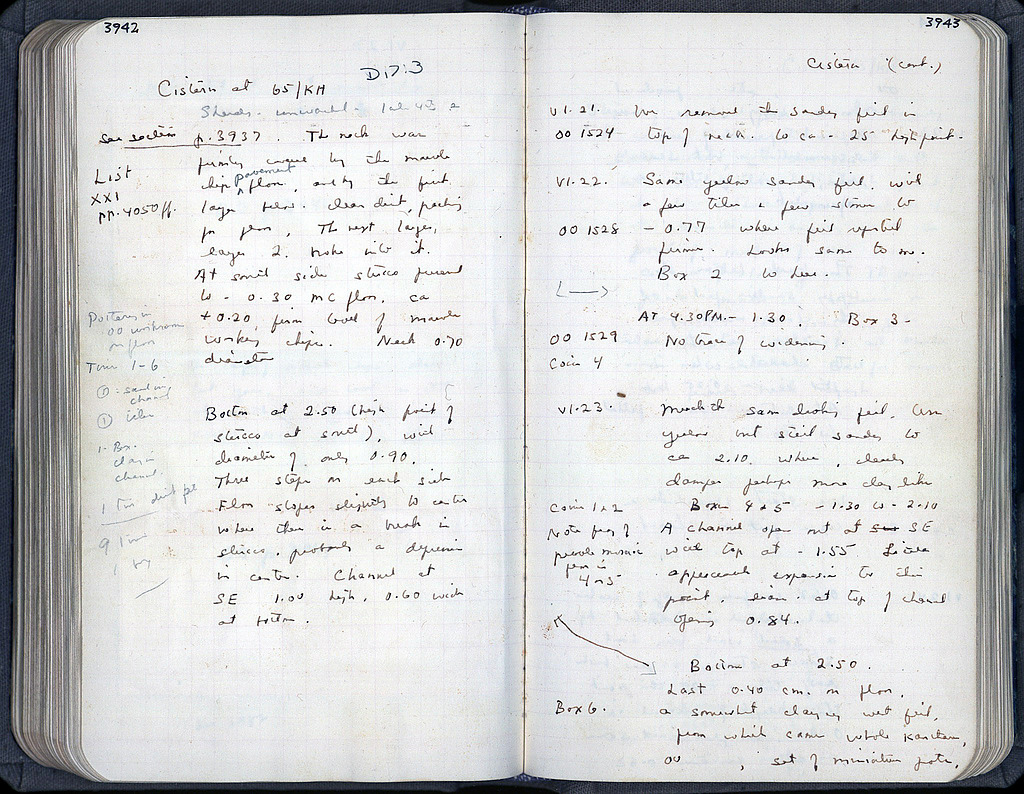 3942
D17:3
Cistern at 65/KH
Sherds - unwashed -
See section p. 3937. The neck was
List
XXI
pp. 4050 ff.
by the marble
chip pavement floor, and by the first
layer below. Clean dirt, packing
for floor, The next layer,
layer 2, broke into it.
At south side stucco preserved
to - 0.30 m floor. ca
+ 0.20, from level of marble
working chips. Neck 0.70
diameter
Pottery in
00 workroom
on floor
Tins 1-6
channel
1. Box
clay in
channel.
1 Tin
9 Tins
Bottom at 2.50 (high point of
stucco at south), with
diameter of only 0.90.
Three steps on each side
Floor slopes slightly to center
where there is a break in
stucco, probably a depression
in center. Channel at
SE 1.00 high, 0.60 wide
at bottom.
3943
Cistern (cont.)
VI.21. We removed the sandy fill in
00 1524 top of neck. to ca - 25 high point.
VI.22. Same yellow sandy fill, with
a few tiles & few stones to
00 1528 - 0.77 where fill
firmer. Looks same to me.
Box 2 to here.
At 4.30 PM. - 1.30. Box 3 -
00 1529 No trace of widening.
Coin 4
VI.23. Much the same looking fill,
yellow but still sandy to
ca 2.10, where, clearly
damper perhaps more clay like
Coins 1 & 2 Boxes 4 & 5 - 1.30 to - 2.10
Note frag of
pebble mosaic
from in
4 or 5
A channel opens out at SE
with top at - 1.55
expansion to this
point. diam. at top of channel
opening 0.84.
Bottom at 2.50.
Last 0.40 cm. on floor,
Box 6. a somewhat clayey wet fill,
from which came whole kantharos,
00 , set of miniature pots,